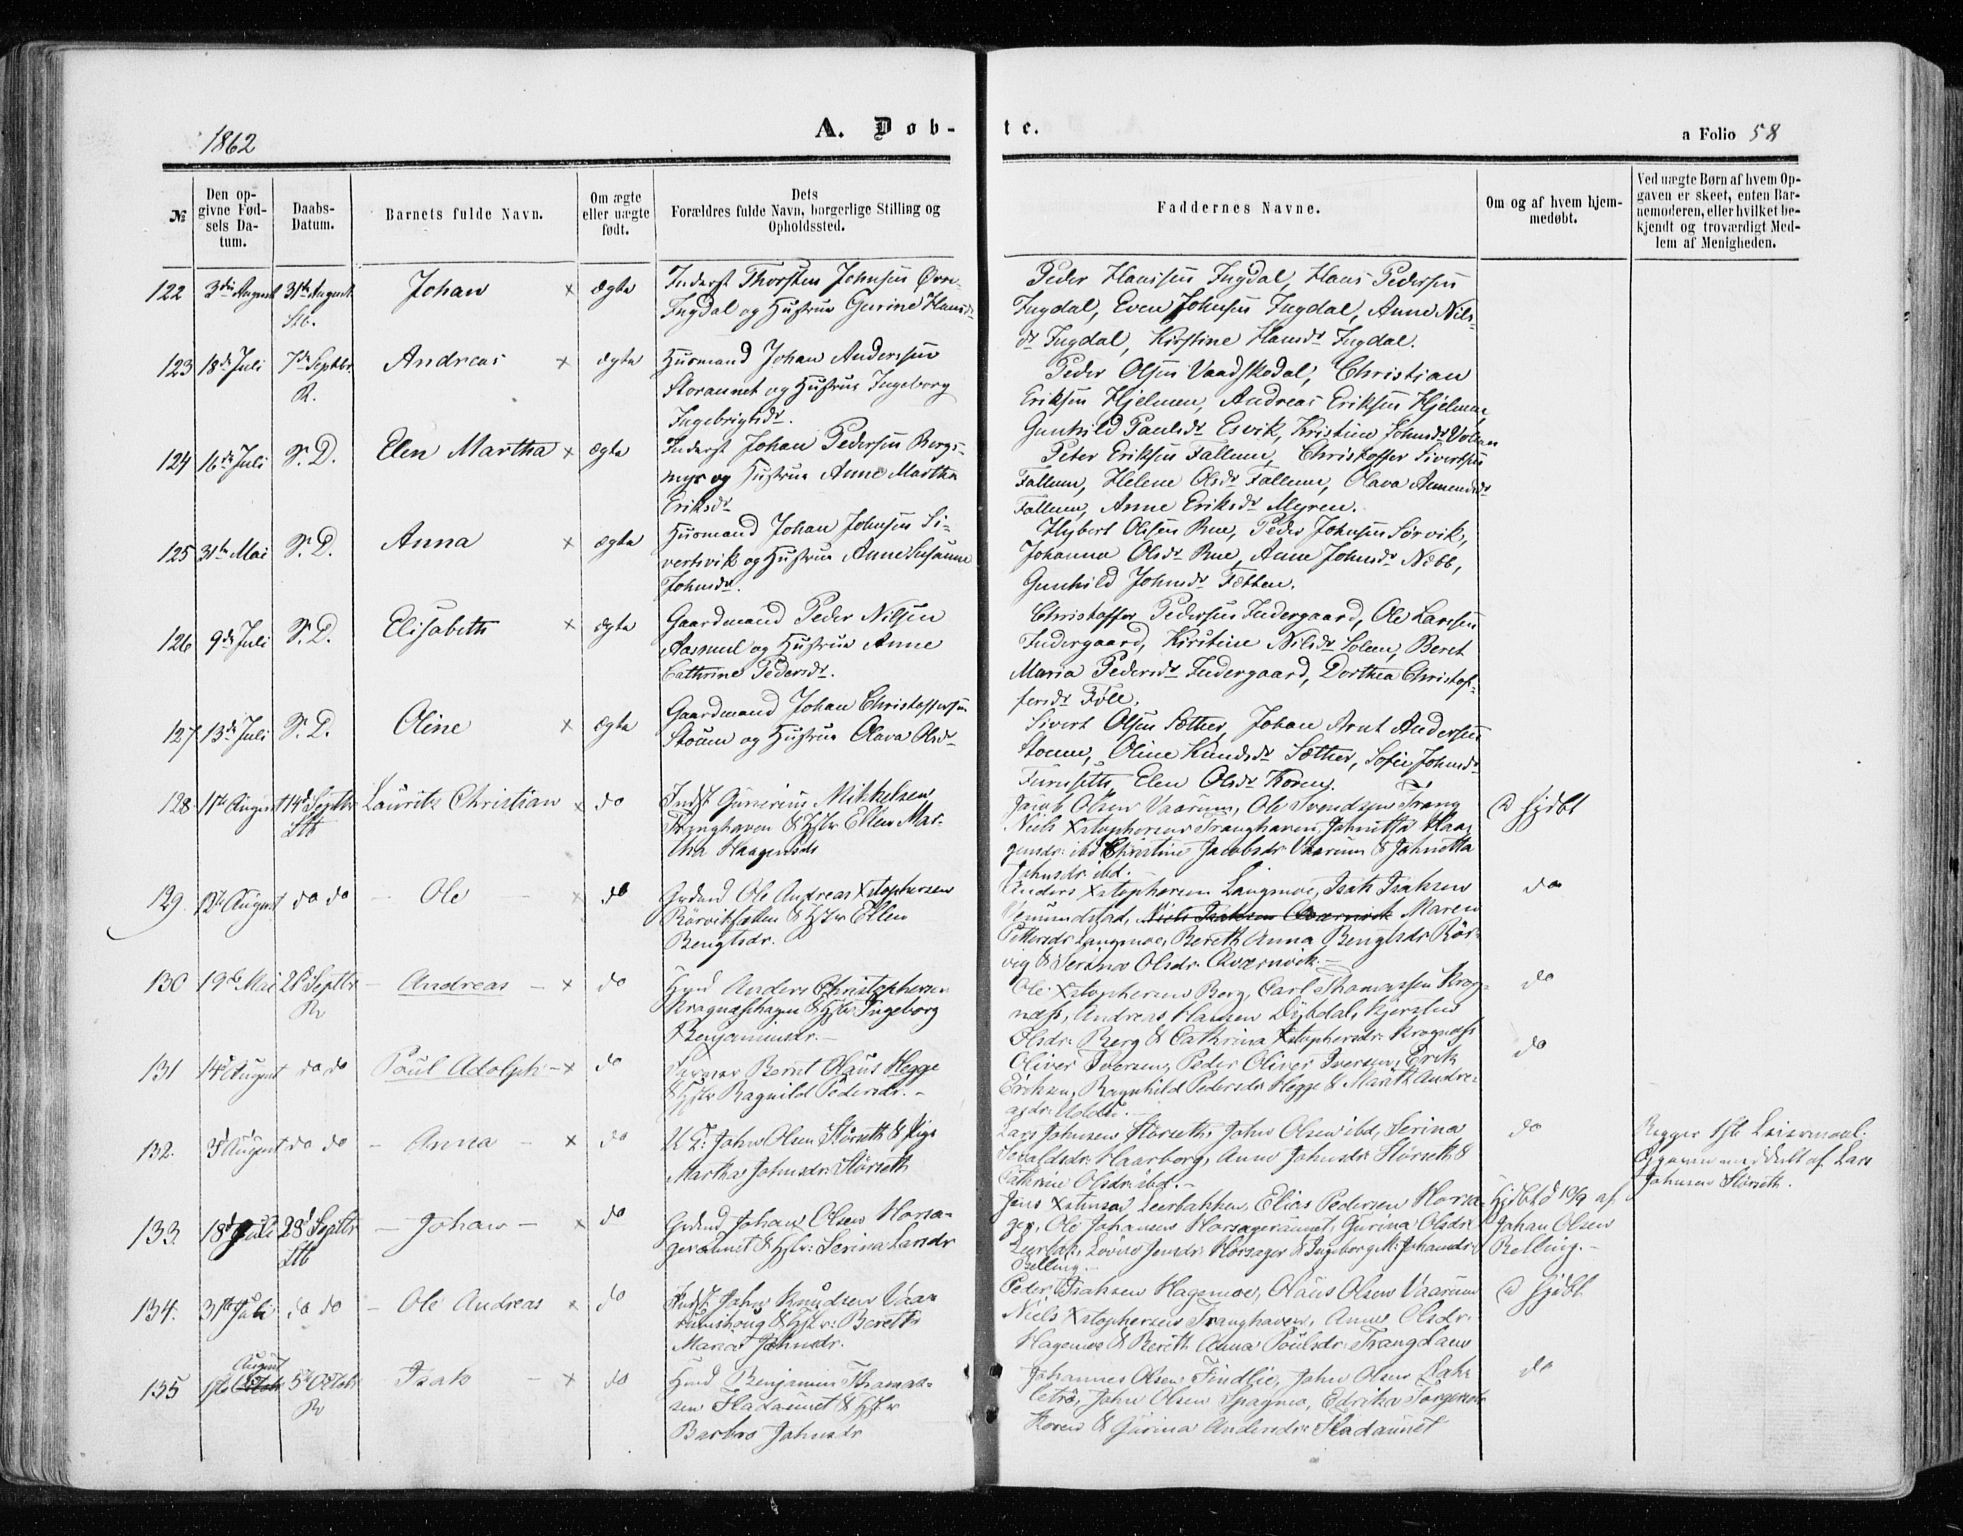 1862
A. Døb-
te.
a Folio 58
№
Den op-
givne Fød-
sels Da-
tum.
Daabs-
Datum.
Barnets fulde Navn.
Om ægte
eller uægte
født.
Dets
Forældres fulde Navn, borgerlige Stilling og
Opholdssted.
Faddernes Navne.
Om og af hvem hjem-
medøbt.
Ved uægte Børn af hvem Op-
gaven er skeet, enten Bar-
nemoderen, eller hvilket be-
kjendt og troværdigt Med-
lem af Menigheden.
122 3die August 31te August Johan × ægte Inderst Thorsten Johnsen Øvre-
Stb. Ingdal og Hustrue Gurine Hansdr
Peder Hanssen Ingdal, Hans Pedersen
Ingdal, Even Johnsen Ingdal, Anne Nils-
dr Ingdal, Kirstine Hansdr Ingdal.
123 18de Juli 7de Septbr. Andreas × ægte Husmand Johan Anderssen
R. Storaunet og Hustrue Ingeborg
Ingebrigtsdr.
Peder Olsen Vaadskedal, Christian
Eriksen Hjelmen, Andreas Eriksen Hjelmen,
Gunhild Paulsdr Esvik, Kristine Johnsdr Volden
124 16de Juli S. D. Elen Martha × ægte Inderst Johan Pedersen Bergs-
myr og Hustrue Anne Martha
Eriksdr
Peter Eriksen Fallum, Christoffer Sivertsen
Fallum, Helene Olsdr Fallum, Olava Amundsdr
Fallum, Anne Eriksdr Myren.
125 31te Mai S. D. Anna × ægte Husmand Johan Johnsen Si-
vertsvik og Hustrue Anne Susanne
Johnsdr.
Hybert Olsen Bue, Peder Johnsen Sørvik,
Johanna Olsdr Bue, Anne Johnsdr Næbb,
Gunhild Johnsdr Fætten.
126 9de Juli S. D. Elisabeth × ægte Gaardmand Peder Nilsen
Aasmul og Hustrue Anne
Cathrine Pedersdr.
Christoffer Pedersen Indergaard, Ole Larssen
Indergaard, Kirstine Nilsdr Solem, Beret
Maria Pedersdr Indergaard, Dorthea Christof-
fersdr Føll.
127 13de Juli S. D. Oline × ægte Gaardmand Johan Christoffersen
Stoum og Hustrue Olava Olsdr
Sivert Olsen Sæther, Johan Arnt Andersen
Stoum, Oline Knudsdr Sæther, Sofie Johnsdr
Furusett, Elen Olsdr Koren.
128. 11te August 14d Septbr Lauritz Christian × do Indst Gunerius Mikkelsen
Stb Tranghaven & Hstr Ellen Mar-
tha Haagensdr
Jacob Olsen Vaarum, Ole Svendsen Trang
Niels Xstophersen Tranghaven, Johnetta Haa-
gensdr ibd Christine Jacobsdr Vaarum & Johnetta
Johnsdr ibd. -
a hjdbt
129. 12te August do do - Ole - × do Grdmd Ole Andreas Xstophersen
Rörvikfætten & Hstr Ellen
Bengtsdr.
Anders Xstophersen Langmoe, Isak Isaksen
Vemundstad, Niels Isaksen Qværnvik Maren
Pettersdr Langmoe, Bereth Anna Bengtsdr Rör-
vig & Serina Olsdr. Qværnvik. -
do
130 19de Mai 21d Septbr - Andreas - × do Hmd Anders Christophersen
R Kragnæshagen & Hstr Ingeborg
Benjaminsdr. -
Ole Xstophersen Berg, Carl Thomassen Krog-
næss, Andreas Hansen Dybdal, Kjersten
Olsdr. Berg & Cathrina Xstophersdr. Krognæss
do
131 14d August do do - Paul Adolph - × do Bernt Olaus Hegge
& Hstr Ragnild Pedersdr. -
Oliver Iversen, Peder Oliver Iversen, Erik
Eriksen, Ragnhild Pedersdr Hegge & Marith Andre-
asdr:
do
132. 3d August do do - Anna - × do U K: John Olsen Störseth & Pige
Martha Johnsdr: Störseth
Lars Johnsen Störseth, John Olsen ibd, Serina
Haarborg, Anne Johnsdr: Störseth &
Cathrine Olsdr: ibd. -
do
Begges 1ste Leiermaal.
Opgaven meddelt af Lars
Johnsen Störseth.
133. 18d Juli 28d Septbr - Johan - × do Grdmd Johan Olsen Horsa-
Stb geraunet & Hstr: Serina Larsdr
Jens Leerbakken, Elias Pedersen Horsa-
ger, Ole Johansen Horsageraunet, Gurina Olsdr:
Leerbak: Lovise Jensdr: Horsager & Ingeborg M: Johansdr:
Belling. -
Hjdbt d 19/9 af
Johan Olsen
Belling. -
134. 31te Juli do do - Ole Andreas × do Indst. John Knudsen Vaa-
rumshoug & Hstr: Bereth
Maria Johnsdr.
Peder Isaksen Hagemoe, Olaus Olsen Vaarum
Niels Xstophersen Tranghaven, Anne Olsdr:
Hagemoe & Bereth Anna Poulsdr: Trangdaen
a hjdbt
135 1ste August Octobr 5te Octobr Isak - × do Hmd Benjamin Thomas-
R sen Fladaunet & Hstr
Barbro Johnsdr
Johannes Olsen Findlie, John Olsen Bak-
letrö, John Olsen Spagmo, Edrika Torgersdr
Koren & Gurina Andersdr: Fladaunet
do